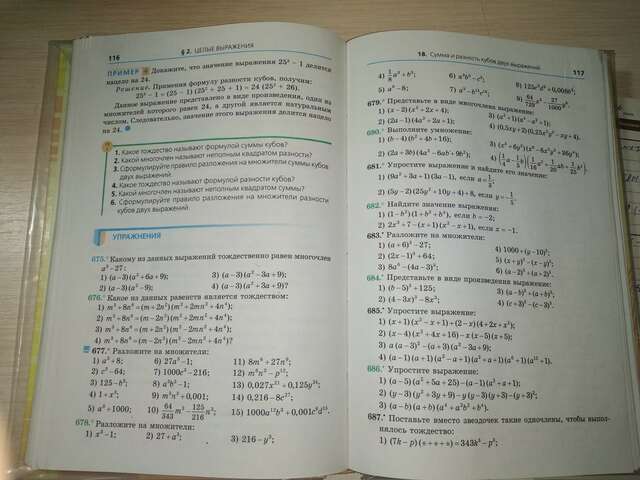 116
§ 2. ЦЕЛЫЕ ВЫРАЖЕНИЯ
ПРИМЕР 4 Докажите, что значение выражения 25³ − 1 делится
нацело на 24.
Решение. Применяя формулу разности кубов, получим:
25³ − 1 = (25 − 1)(25² + 25 + 1) = 24 (25² + 26).
Данное выражение представлено в виде произведения, один из
множителей которого равен 24, а другой является натуральным
числом. Следовательно, значение этого выражения делится нацело
на 24.
?
1. Какое тождество называют формулой суммы кубов?
2. Какой многочлен называют неполным квадратом разности?
3. Сформулируйте правило разложения на множители суммы кубов
двух выражений.
4. Какое тождество называют формулой разности кубов?
5. Какой многочлен называют неполным квадратом суммы?
6. Сформулируйте правило разложения на множители разности
кубов двух выражений.
УПРАЖНЕНИЯ
675.° Какому из данных выражений тождественно равен многочлен
a³ − 27:
1) (a − 3)(a² + 6a + 9); 3) (a − 3)(a² − 3a + 9);
2) (a − 3)(a² + 3a + 9); 4) (a − 3)(a² − 3a + 9)?
676.° Какое из данных равенств является тождеством:
1) m³ + 8n⁶ = (m − 2n²)(m² + 2mn² + 4n⁴);
4) m³ + 8n⁶ = (m + 2n²)(m² − 2mn² + 4n⁴)?
677.° Разложите на множители:
1) a³ + 8; 6) 27a³ − 1; 11) 8m⁶ + 27n⁹;
2) c³ − 64; 7) 1000c³ − 216; 12) m⁶n³ − p¹²;
3) 125 − b³; 8) a³b³ − 1; 13) 0,027x²¹ + 0,125y²⁴;
4) 1 + x³; 9) m³n³ + 0,001; 14) 0,216 − 8c²⁷;
5) a³ + 1000; 10) 64/343 m³ − 125/216 n³; 15) 1000a¹²b³ + 0,001c⁶d¹⁵.
678.° Разложите на множители:
1) x³ − 1; 2) 27 + a³; 3) 216 − y³;
18. Сумма и разность кубов двух выражений
117
4) 1/8 a³ + b³; 6) a³b³ − c³;
5) a⁶ − 8;
679.° Представьте в виде многочлена выражение:
1) (x − 2)(x² + 2x + 4);
2) (2a − 1)(4a² + 2a + 1);
680.° Выполните умножение:
1) (b − 4)(b² + 4b + 16);
2) (2a + 3b)(4a² − 6ab + 9b²);
681.° Упростите выражение и найдите его значение:
1) (9a² + 3a + 1)(3a − 1), если a = 1/3;
2) (5y − 2)(25y² + 10y + 4) + 8, если y = −1/5.
682.° Найдите значение выражения:
1) (1 − b²)(1 + b² + b⁴), если b = −2;
2) 2x³ + 7 − (x + 1)(x² − x + 1), если x = −1.
683.° Разложите на множители:
1) (a + 6)³ − 27; 4) 1000 + (y − 10)³;
2) (2x − 1)³ + 64; 5) (x + y)³ − (x − y)³;
3) 8a⁶ − (4a − 3)³; 6) (a − 2)³ + (a + 2)³.
684.° Представьте в виде произведения выражение:
1) (b − 5)³ + 125; 3) (a − b)³ + (a + b)³;
2) (4 − 3x)³ − 8x³; 4) (c + 3)³ − (c − 3)³.
685.° Упростите выражение:
1) (x + 1)(x² − x + 1) + (2 − x)(4 + 2x + x²);
2) (x − 4)(x² + 4x + 16) − x(x − 5)(x + 5);
3) a(a − 3)² − (a + 3)(a² − 3a + 9);
4) (a − 1)(a + 1)(a² − a + 1)(a² + a + 1)(a⁶ + 1)(a¹² + 1).
686.° Упростите выражение:
1) (a − 5)(a² + 5a + 25) − (a − 1)(a² + a + 1);
2) (y − 3)(y² + 3y + 9) − y(y − 3)(y + 3) − (y + 3)²;
3) (a − b)(a + b)(a⁴ + a²b² + b⁴).
687.° Поставьте вместо звездочек такие одночлены, чтобы выпол-
нялось тождество:
1) (7k − p)(∗ + ∗ + ∗) = 343k³ − p³;